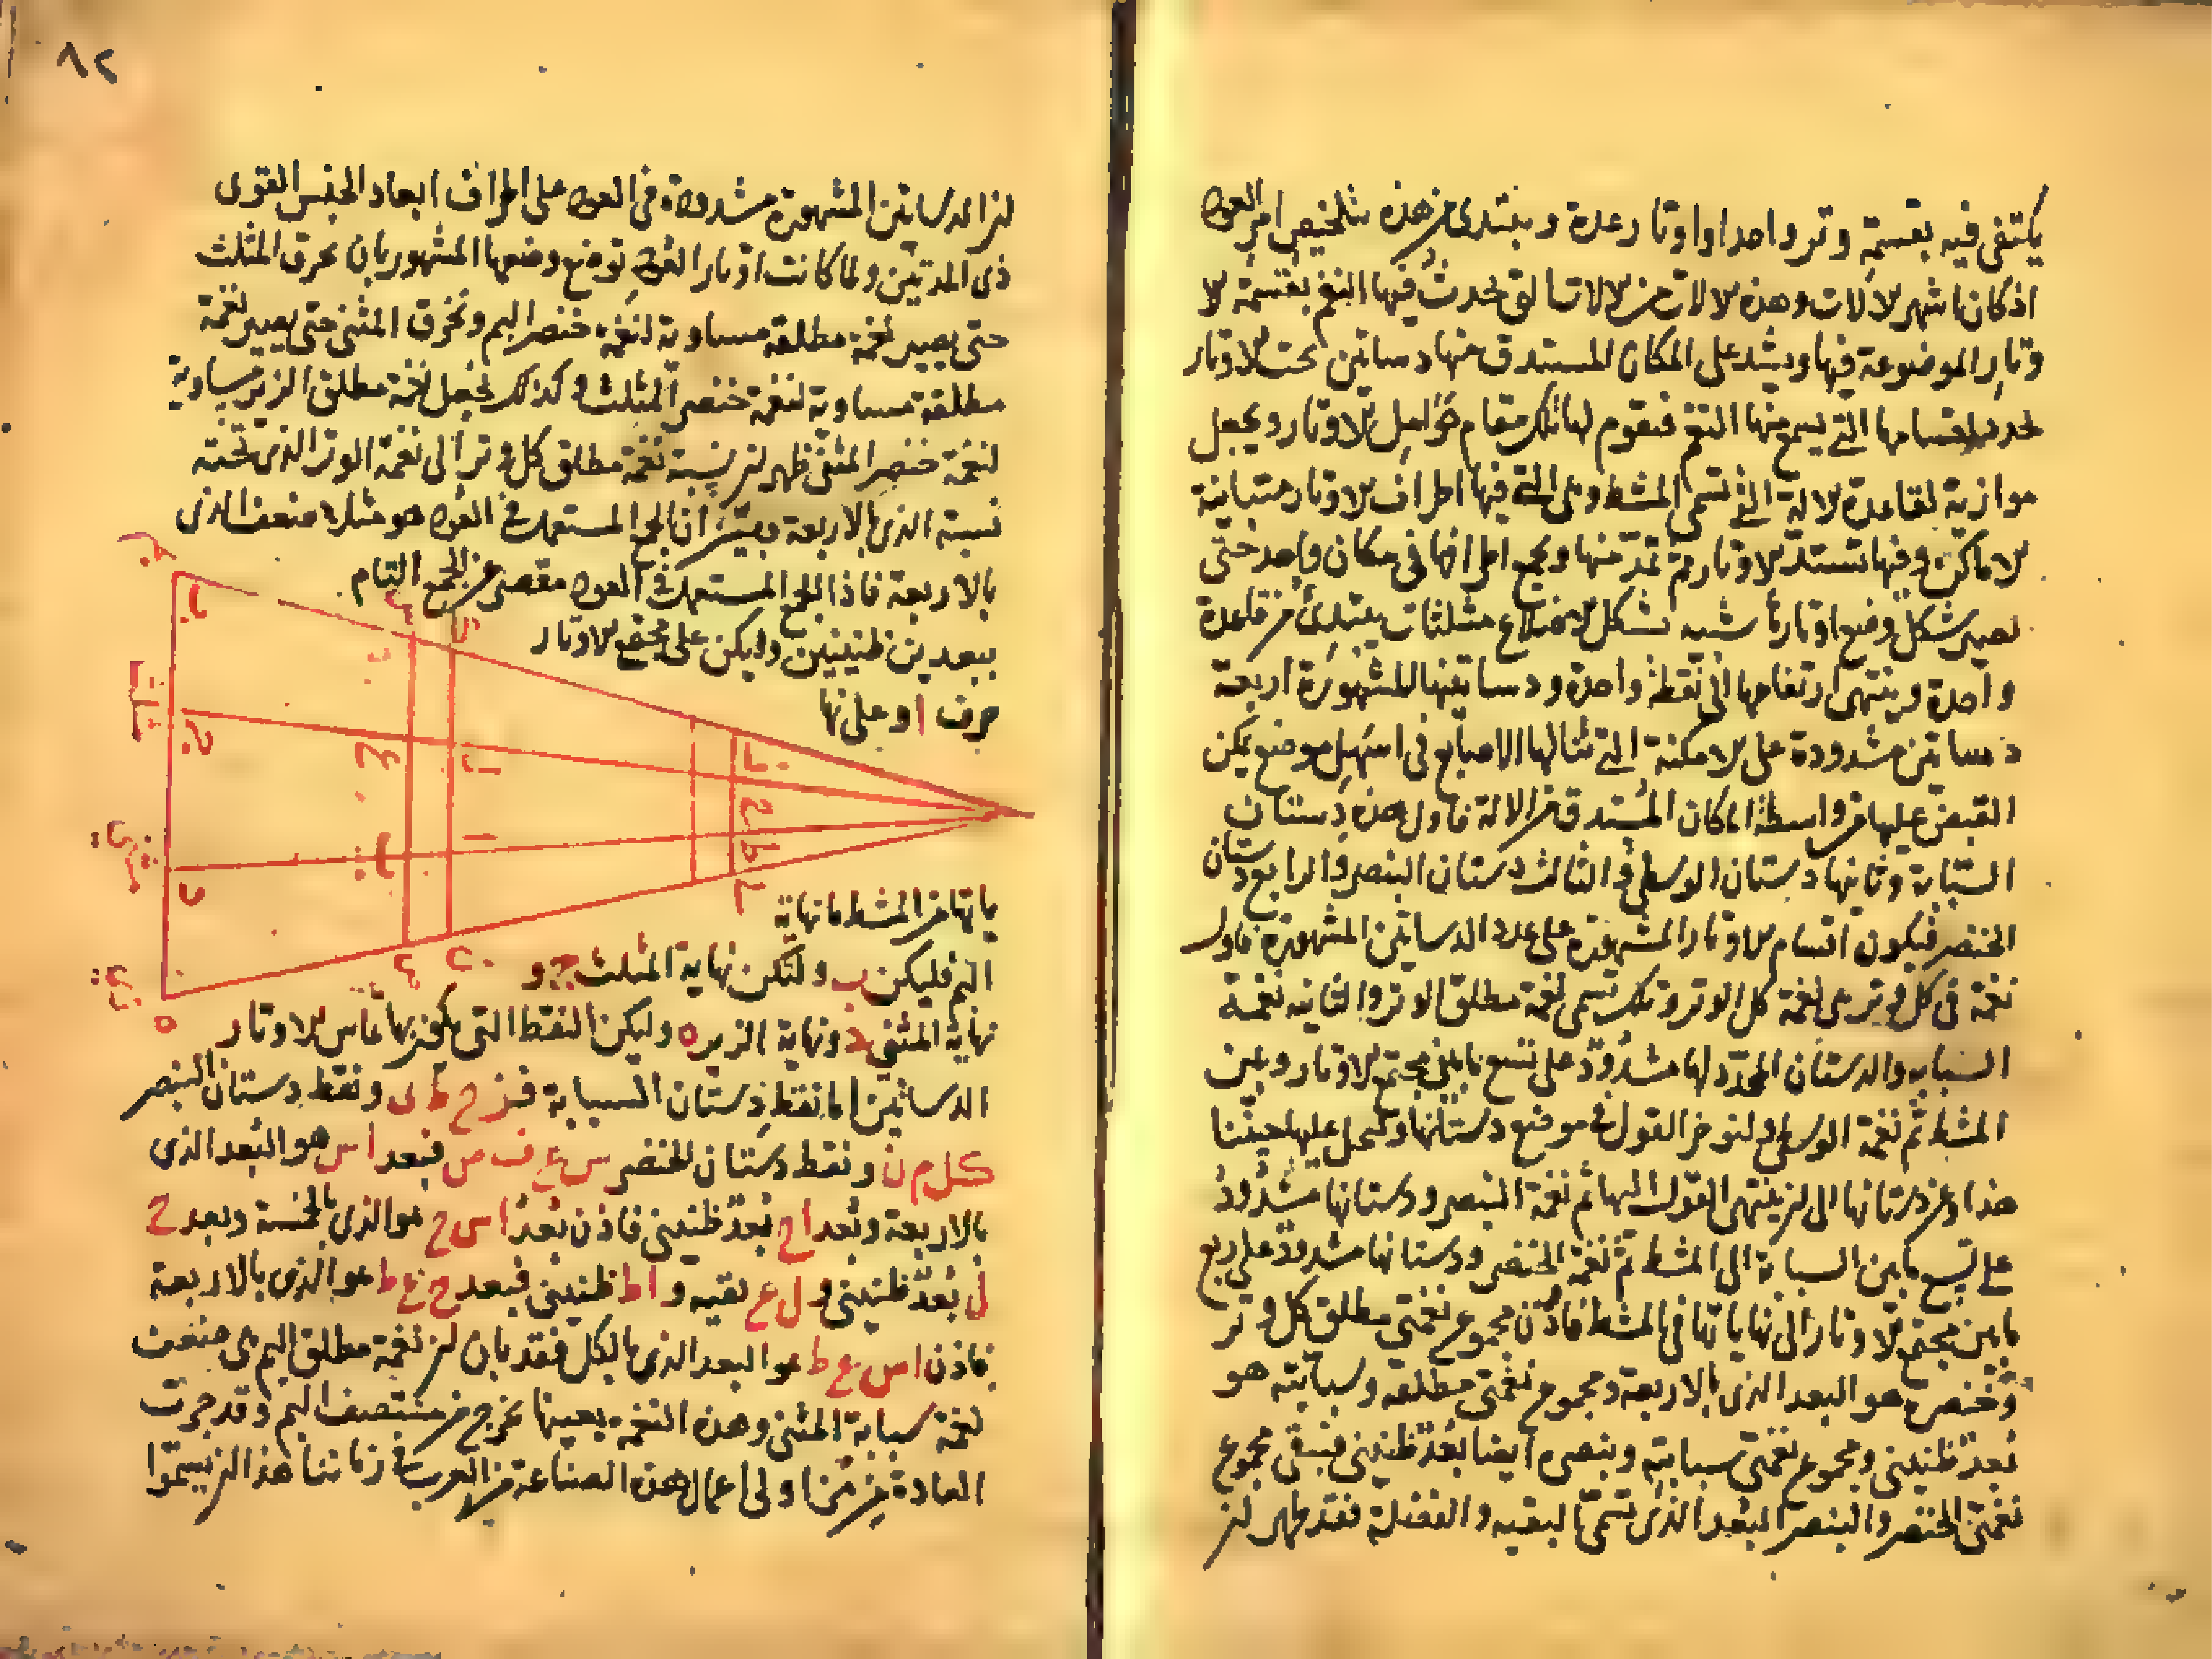 يكتفى فيه بقسمة وتر واحد او اوتار عدة ونبتدى من هذه بتلخيص امر العود
اذ كان اشهر الالات وهذه الالات من الالات التى تحدث فيها النغم بقسمة الا
وتار الموضوعة فيها ويشد على المكان المستدق منها دساتين تحت الاوتار
تحدد اقسامها التى يسمع منها النغم فتقوم لها تلك مقام حوامل الاوتار ويجعل
موازية لقاعدة الالة التى تسمى المشط وهى التى فيها اطراف الاوتار متباينة
الاماكن وفيها تستند الاوتار ثم تمد منها ويجمع اطرافها فى مكان واحد حتى
يصير شكل وضع اوتارها شبيه بشكل اضلاع مثلثات يبتدئ من قاعدة
واحدة وينتهى ارتفاعها الى نقطة واحدة ودساتينها المشهورة اربعة
دساتين مشدودة على الامكنة التى تنالها الاصابع فى اسهل موضع يمكن
القبض عليها من واسطة المكان المستدق من الالة فاول هذه دستان
السبابة وثانيها دستان الوسطى والثالث دستان البنصر والرابع دستان
الخنصر فيكون اقسام الاوتار المشهورة على عدد الدساتين المشهورة فاول
نغمة فى كل وتر هى نغمة كل الوتر وتلك تسمى نغمة مطلق الوتر والثانيه نغمة
السبابه والدستان المحدد لها مشدود على تسع ما بين مجتمع الاوتار وبين
المشط ثم نغمة الوسطى ولنوخر القول فى موضع دستانها
هذا وعن دستانها الى ان ينتهى القول اليها ثم نغمة البنصر ودستانها مشدود
على تسع ما بين السبابة الى المشط ثم نغمة الخنصر ودستانها مشدود على ربع
ما بين مجتمع الاوتار الى نهاياتها فى المشط فاذن مجموع نغمتى مطلق كل وتر
وخنصره هو البعد الذى بالاربعة ومجموع نغمتى مطلقه وسبابته هو
بعد طنينى ومجموع نغمتى سبابته وبنصره ايضا بعد طنينى فتبقى مجموع
نغمتى الخنصر والبنصر البعد الذى تسمى البقيه والفضلة فقد ظهر ان
٨٢
ان الدساتين المشهورة مشدودة فى العود على اطراف ابعاد الجنس القوى
ذى المدتين ولما كانت اوتار العود توضع وضعها المشهور بان يحزق المثلث
حتى يصير نغمة مطلقة مساوية لنغمه خنصر البم وتحزق المثنى حتى يصير نغمة
مطلقة مساوية لنغمة خنصر المثلث وكذلك يجعل نغمة مطلق الزير مساوية
لنغمة خنصر المثنى ظهر ان نسبة نغمة مطلق كل وتر الى نغمة الوتر الذى تحته
نسبة الذى بالاربعة وبين ان الجمع المستعمل فى العود هو مثلا ضعف الذى
بالاربعة فاذا الجمع المستعمل فى العود مقصر عن الجمع التام
ببعدين طنينيين وليكن على مجتمع الاوتار
حرف ا وعلى نها
ياتها من المشط ما نهاية
البم فليكن ب ولتكن نهاية المثلث ج و
نهاية المثنى د ونهاية الزير ه وليكن النقط التى يكون بها تماس الاوتار
الدساتين اما نقط دستان السبابة فز ح ط ى ونقط دستان البنصر
ك ل م ن ونقط دستان الخنصر س ع ف ص فبعد ا س هو البعد الذى
بالاربعة وبعد ا ح بعد طنينى فاذن بعد ا س ح هو الذى بالخمسة وبعد ح
ل بعد طنينى و ل ع بقيه و ا ط طنينى فبعد ح ع ط هو الذى بالاربعة
فاذن ا س ع ط هو البعد الذى بالكل فقد بان ان نغمة مطلق البم هى ضعف
نغمة سبابة المثنى وهذه النغمه بعينها تخرج من منتصف البم وقد جرت
العادة من مزاولى اعمال هذه الصناعة من العرب فى زماننا هذا ان يسموا